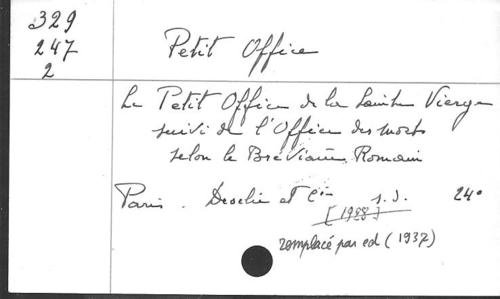 329
247
2
Petit Office
Le Petit Office de la Sainte Vierge
suivi de l'Office des morts
selon le Bréviaire Romain
Paris. Desclée et Cie s.d. 24°
[1928]
remplacé par ed (1937)